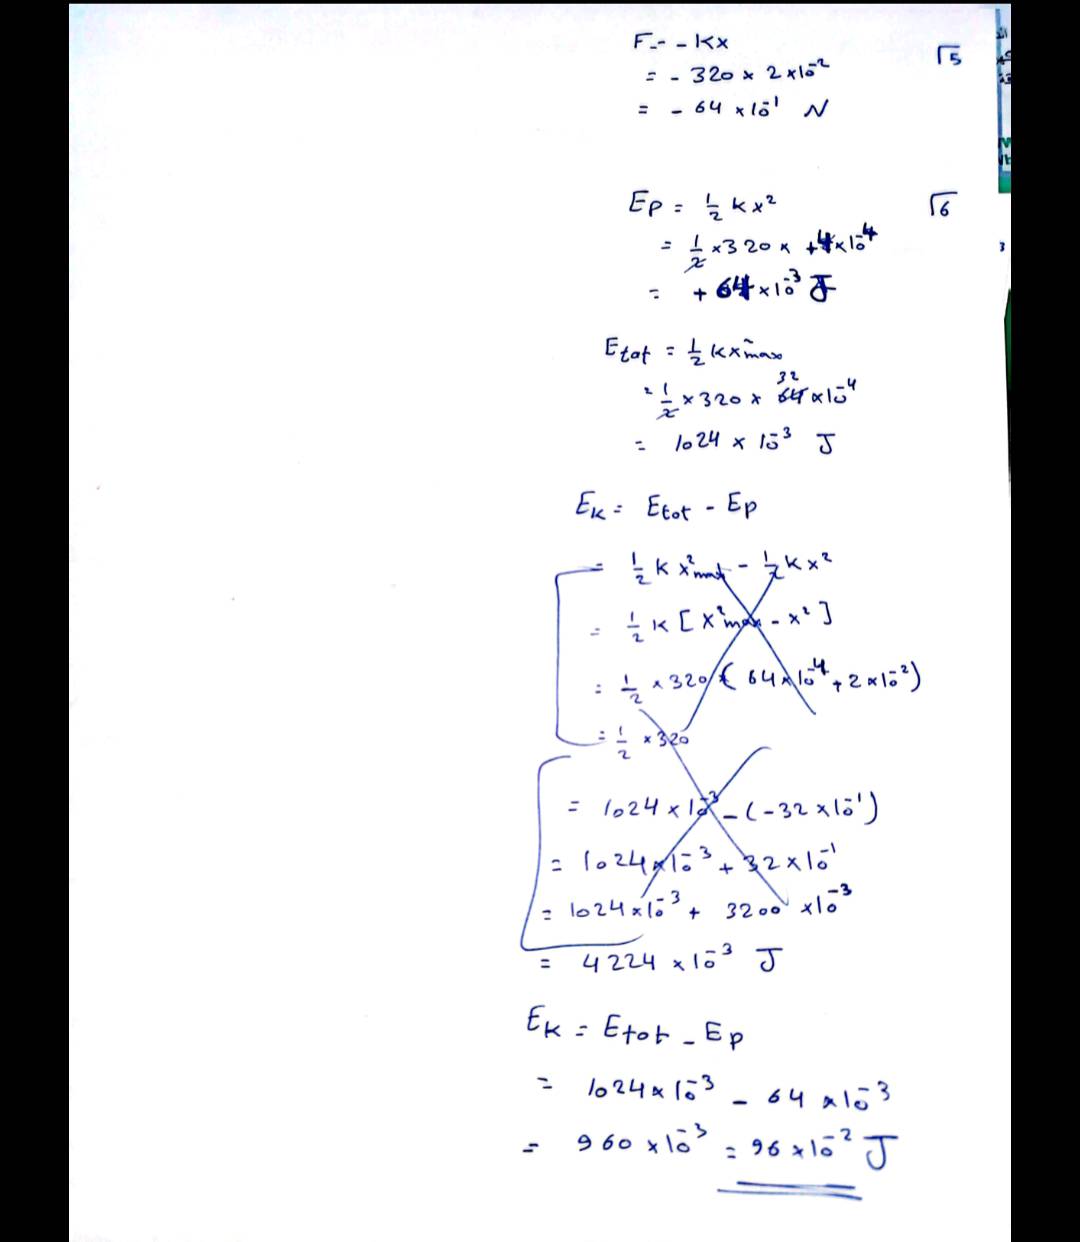 F = - Kx
= - 320 × 2 × 10⁻²
= - 64 × 10⁻¹ N
√5
Ep = ½ k x²
√6
= ½ × 320 × +4 × 10⁻⁴
= + 64 × 10⁻³ J
3
Etot = ½ k x²max
32
= ½ × 320 × 64 × 10⁻⁴
= 1024 × 10⁻³ J
Ek = Etot - Ep
= ½ k x²max - ½ k x²
= ½ k [ x²max - x² ]
= ½ × 320 × ( 64 × 10⁻⁴ + 2 × 10⁻² )
= ½ × 320
= 1024 × 10⁻³ - ( -32 × 10⁻¹ )
= 1024 × 10⁻³ + 32 × 10⁻¹
= 1024 × 10⁻³ + 3200 × 10⁻³
= 4224 × 10⁻³ J
Ek = Etot - Ep
= 1024 × 10⁻³ - 64 × 10⁻³
= 960 × 10⁻³ = 96 × 10⁻² J